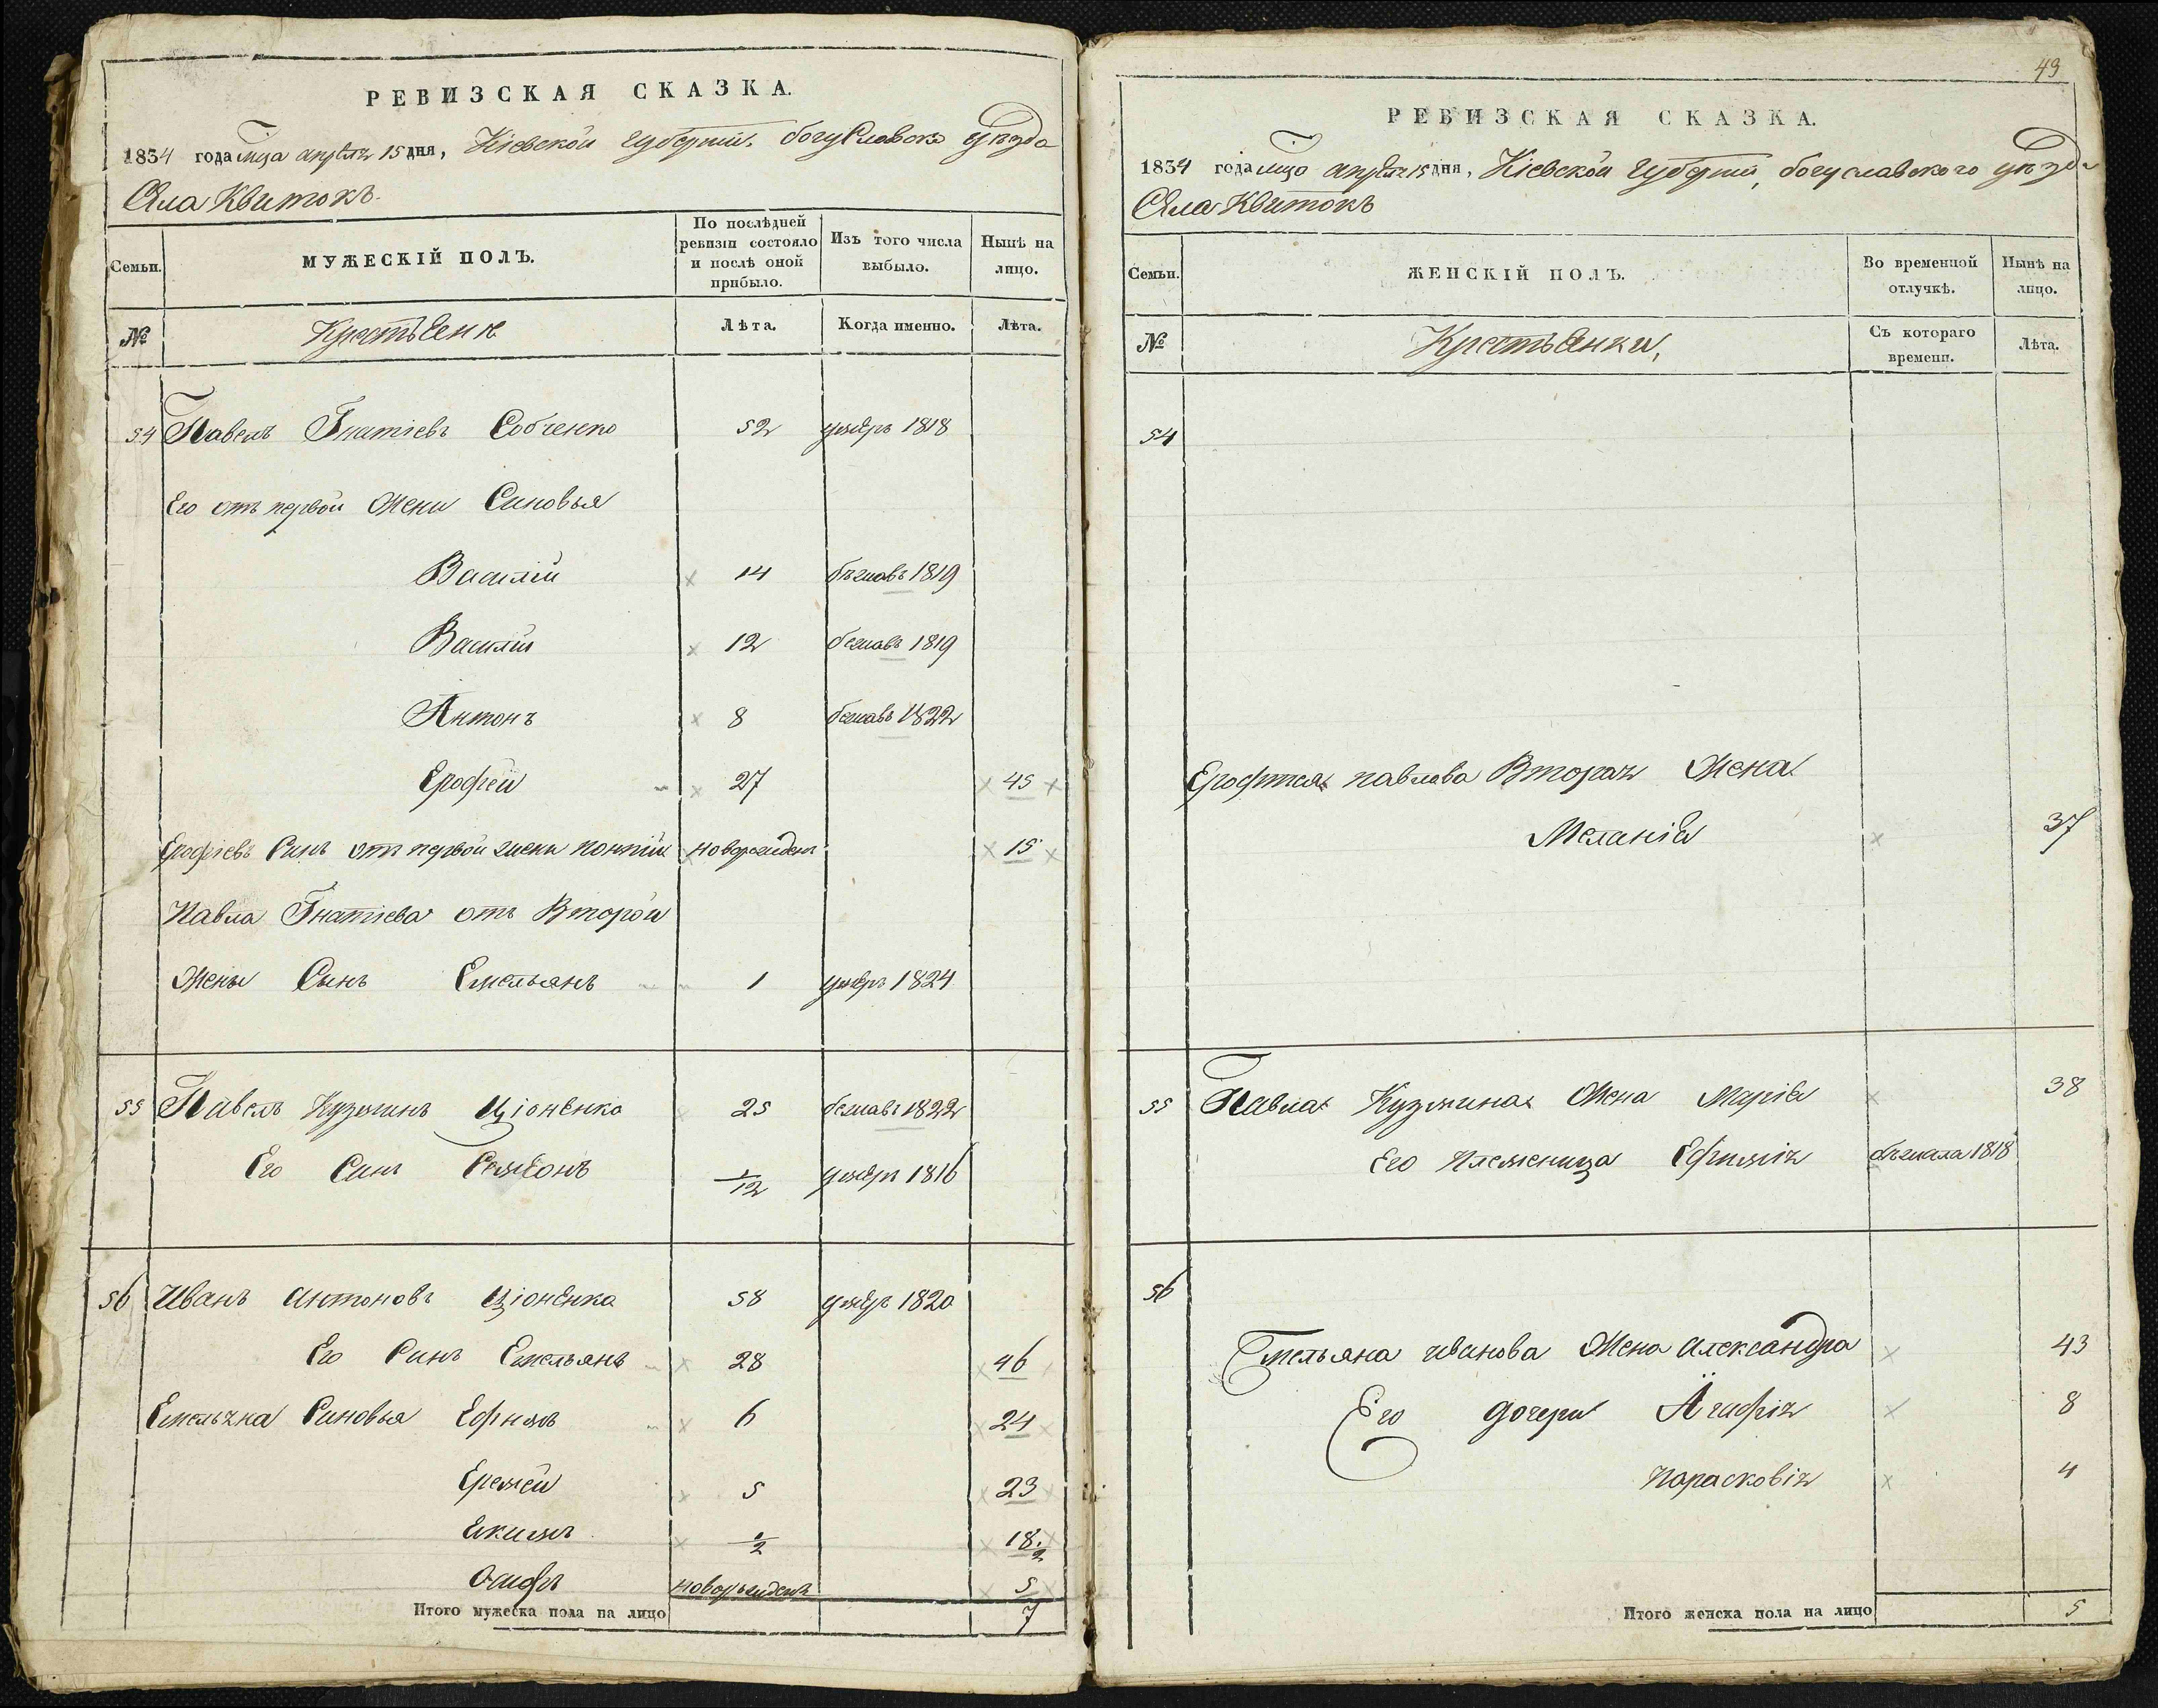 РЕВИЗСКАЯ СКАЗКА.
1834 года мца апреля 15 дня, Кіевской губерніи, богуславско уѣзда
Села Квитокъ.
Семьи.
МУЖЕСКІЙ ПОЛЪ.
По послѣдней ревизіи состояло и послѣ оной прибыло.
Изъ того числа выбыло.
Нынѣ на лицо.
№
Крестьяне
Лѣта.
Когда именно.
Лѣта.
54 Павелъ Гнатіевъ Собченко 52 умеръ 1818
Его отъ первой жени Синовья
Василій 14 бѣжавъ 1819
Василій 12 бежавъ 1819
Антонъ 8 бежавъ 1822
Ерофей 27 45
Ерофіевъ Синъ отъ первой жены понтій новорожденъ 15
Павла Гнатіева отъ Второй
Жены Сынъ Емельянъ 1 умеръ 1824
55 Павелъ Кузминъ Ціоненко 25 бежавъ 1822
Его Синъ Семіонъ 1/12 умеръ 1816
56 Иванъ Антоновъ Ціоненко 58 умеръ 1820
Его Синъ Емельянъ 28 46
Емельяна Синовья Ефимъ 6 24
Еремей 5 23
Екимъ 1/2 18 1/2
Осифъ новорожденъ 5
Итого мужеска пола на лицо 7
49
РЕВИЗСКАЯ СКАЗКА.
1834 года мца апреля 15 дня, Кіевской губерніи, богуславского уѣзда
Села Квитокъ
Семьи.
ЖЕНСКІЙ ПОЛЪ.
Во временной отлучкѣ.
Нынѣ на лицо.
№
Крестьянки,
Съ котораго времени.
Лѣта.
54
Ерофтея павлова Вторая Жена
Меланія 37
55 Павла Кузмина Жена Марія 38
Его племеница Ефимія бѣжала 1818
56
Емельяна иванова Жена Александра 43
Его дочери Агафія 8
Парасковія 4
Итого женска пола на лицо 5